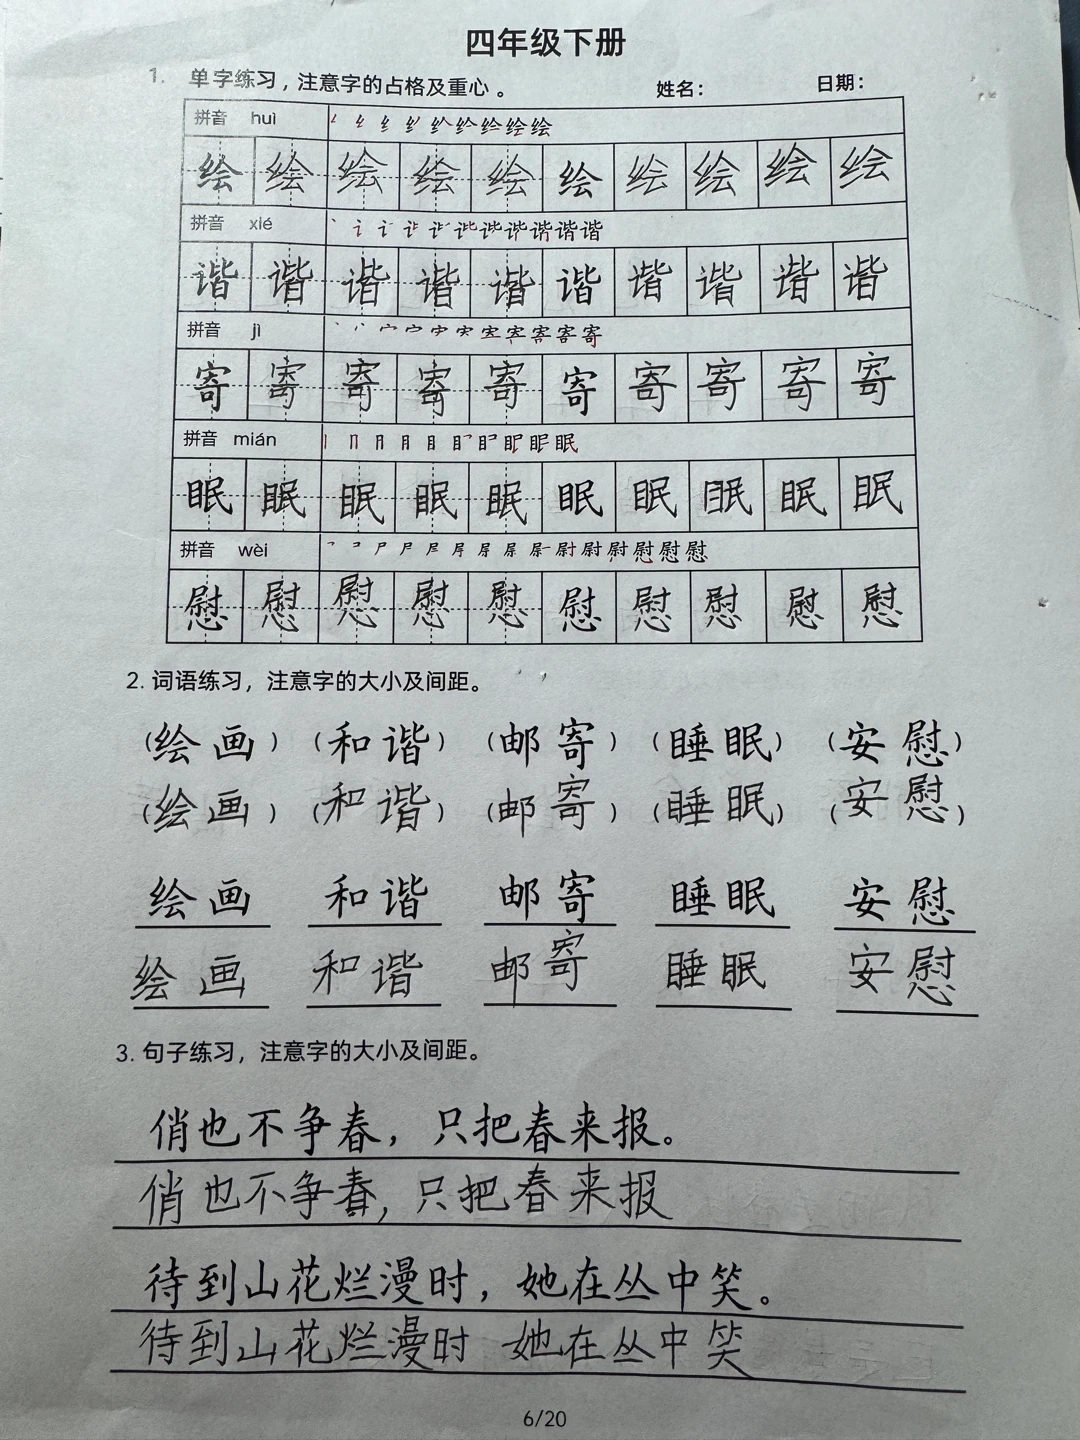 四年级下册
1. 单字练习，注意字的占格及重心。 姓名： 日期：
拼音 huì 绘
绘 绘 绘 绘 绘 绘 绘 绘 绘 绘
拼音 xié 谐
谐 谐 谐 谐 谐 谐 谐 谐 谐 谐
拼音 jì 寄
寄 寄 寄 寄 寄 寄 寄 寄 寄 寄
拼音 mián 眠
眠 眠 眠 眠 眠 眠 眠 眠 眠 眠
拼音 wèi 慰
慰 慰 慰 慰 慰 慰 慰 慰 慰 慰
2. 词语练习，注意字的大小及间距。
（绘画）（和谐）（邮寄）（睡眠）（安慰）
（绘画）（和谐）（邮寄）（睡眠）（安慰）
绘画 和谐 邮寄 睡眠 安慰
绘画 和谐 邮寄 睡眠 安慰
3. 句子练习，注意字的大小及间距。
俏也不争春，只把春来报。
俏也不争春，只把春来报
待到山花烂漫时，她在丛中笑。
待到山花烂漫时 她在丛中笑
6/20